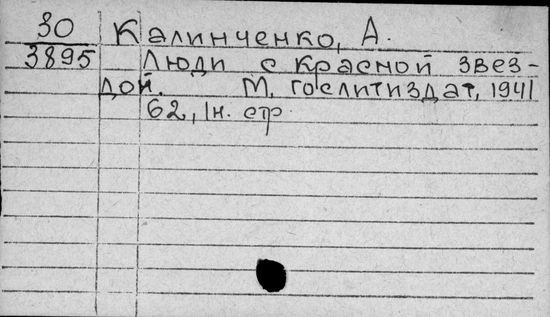 30 Калинченко, А.
3895 Люди с красной звез-
дой. М. гослитиздат, 1941
62, 1н. стр.